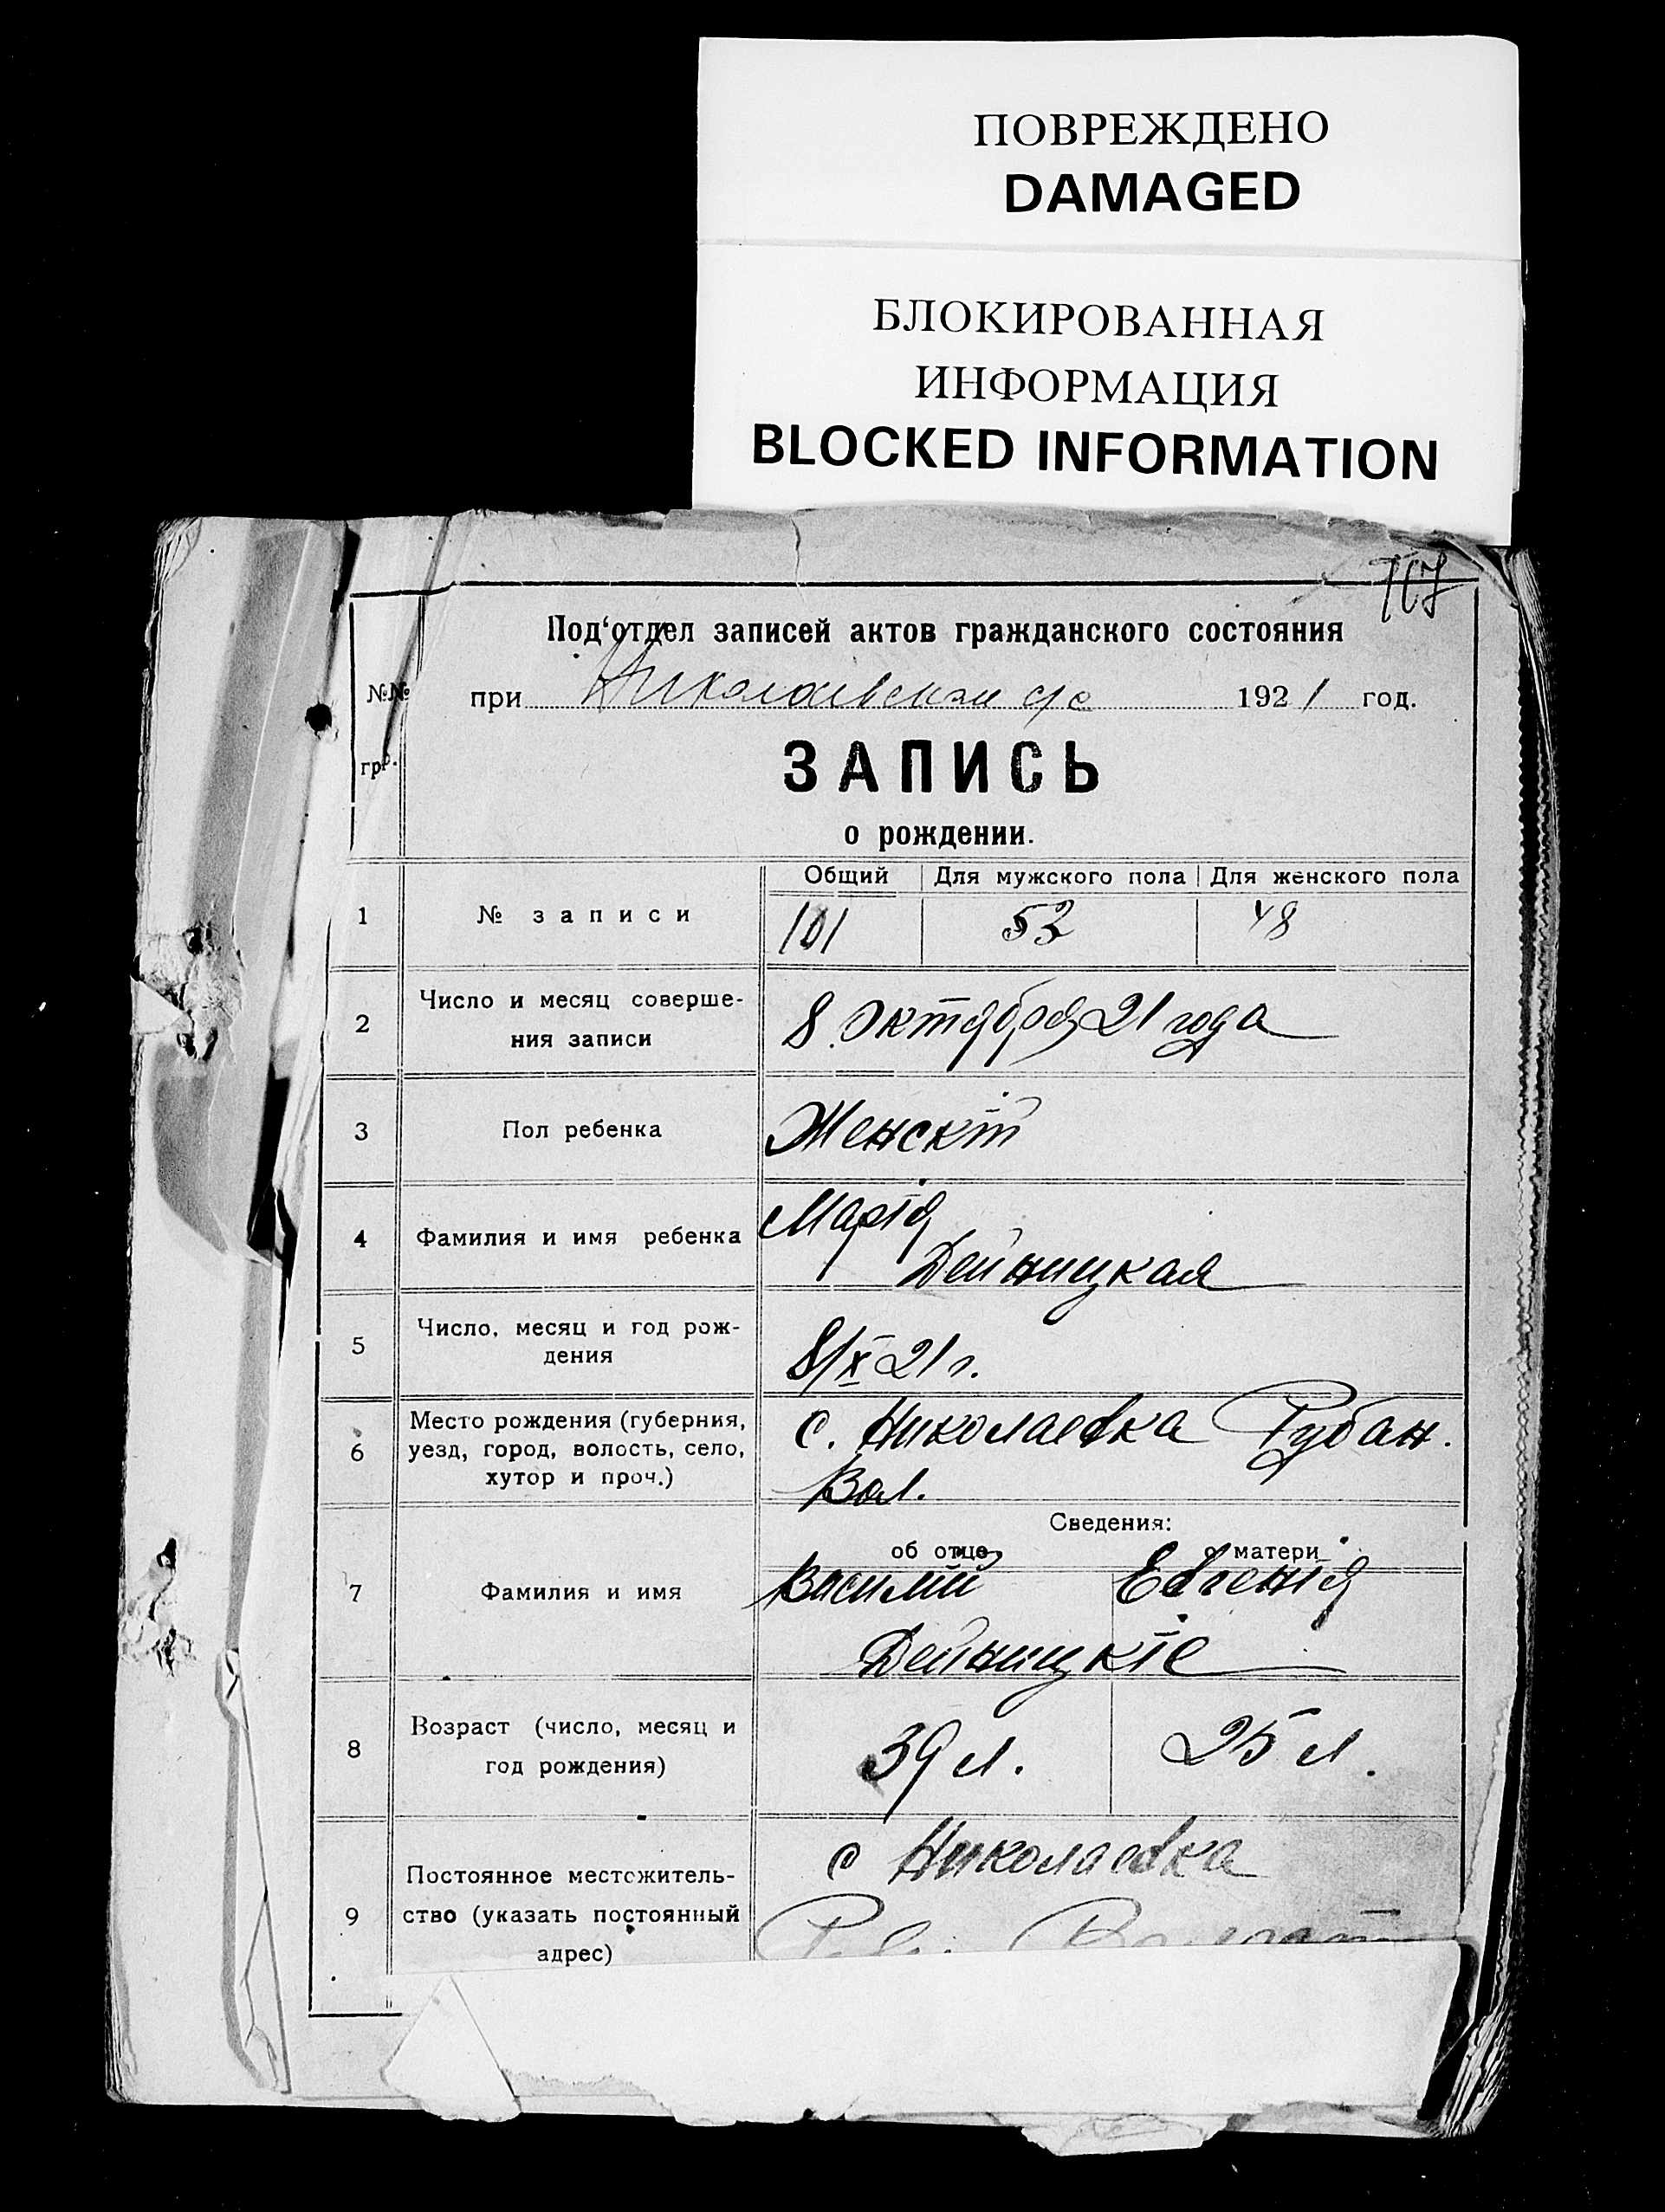 ПОВРЕЖДЕНО
DAMAGED
БЛОКИРОВАННАЯ
ИНФОРМАЦИЯ
BLOCKED INFORMATION
107
Под‘отдел записей актов гражданского состояния
№№ при Николаевском с/с 1921 год.
гр.
ЗАПИСЬ
о рождении.
Общий Для мужского пола Для женского пола
1 № записи 101 53 48
2 Число и месяц соверше-
ния записи 8 Октября 21 года
3 Пол ребенка Женскій
4 Фамилия и имя ребенка Марія
Дейницкая
5 Число, месяц и год рож-
дения 8/X 21 г.
6 Место рождения (губерния,
уезд, город, волость, село,
хутор и проч.) с. Николаевка Рубан.
Вол.
Сведения:
об отце о матери
7 Фамилия и имя Василий Евгенія
Дейницкіе
8 Возраст (число, месяц и
год рождения) 39 л. 25 л.
9 Постоянное местожитель-
ство (указать постоянный
адрес) с Николаевка